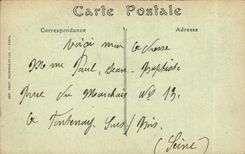 Carte Postale
Correspondance
Adresse
Voici mon adresse
Mme Paul, Jean-Baptiste
Rue du Marchais No 13.
à Fontenay Sous/Bois.
(Seine)